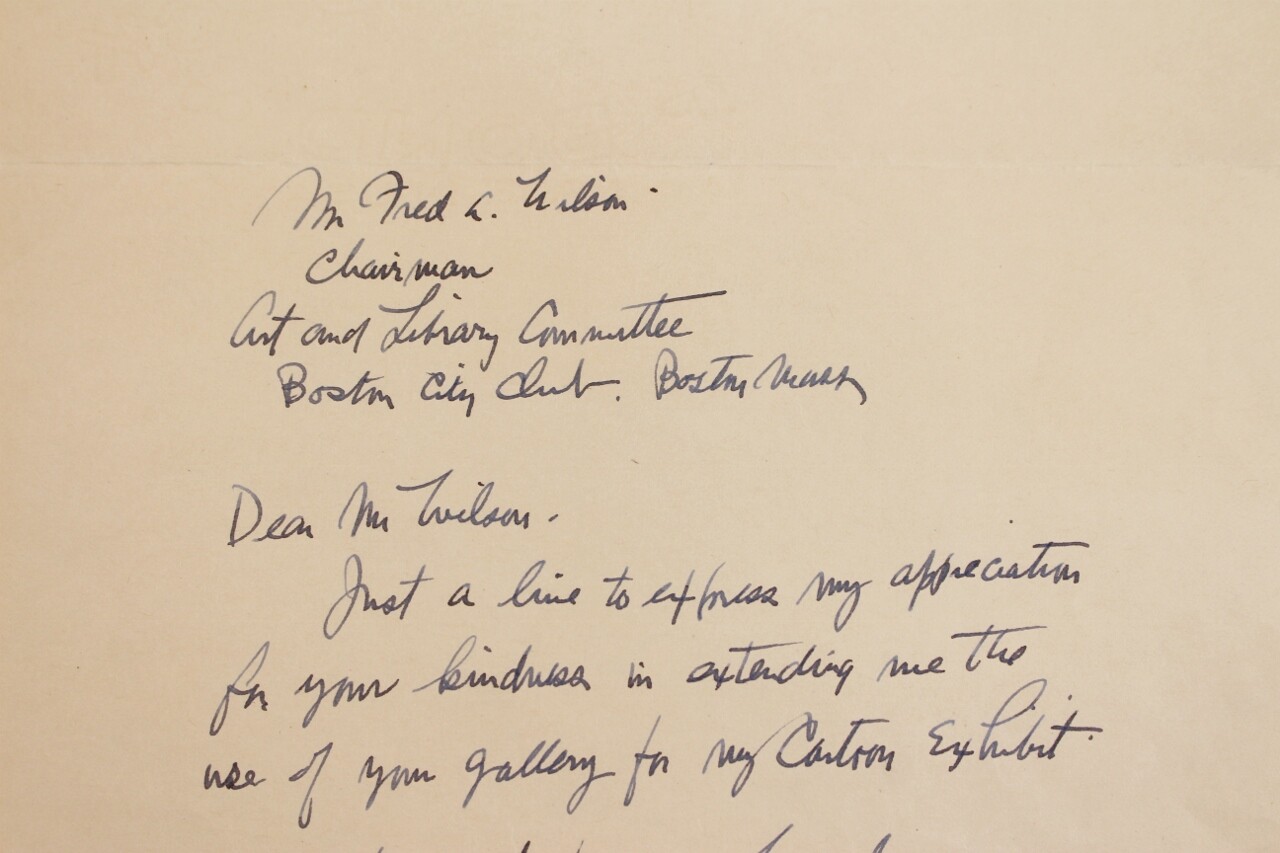 Mr Fred A. Wilson.
Chairman
Art and Library Committee
Boston City Club. Boston Mass
Dear Mr Wilson.
Just a line to express my appreciation
for your kindness in extending me the
use of your gallery for my Cartoon Exhibit.